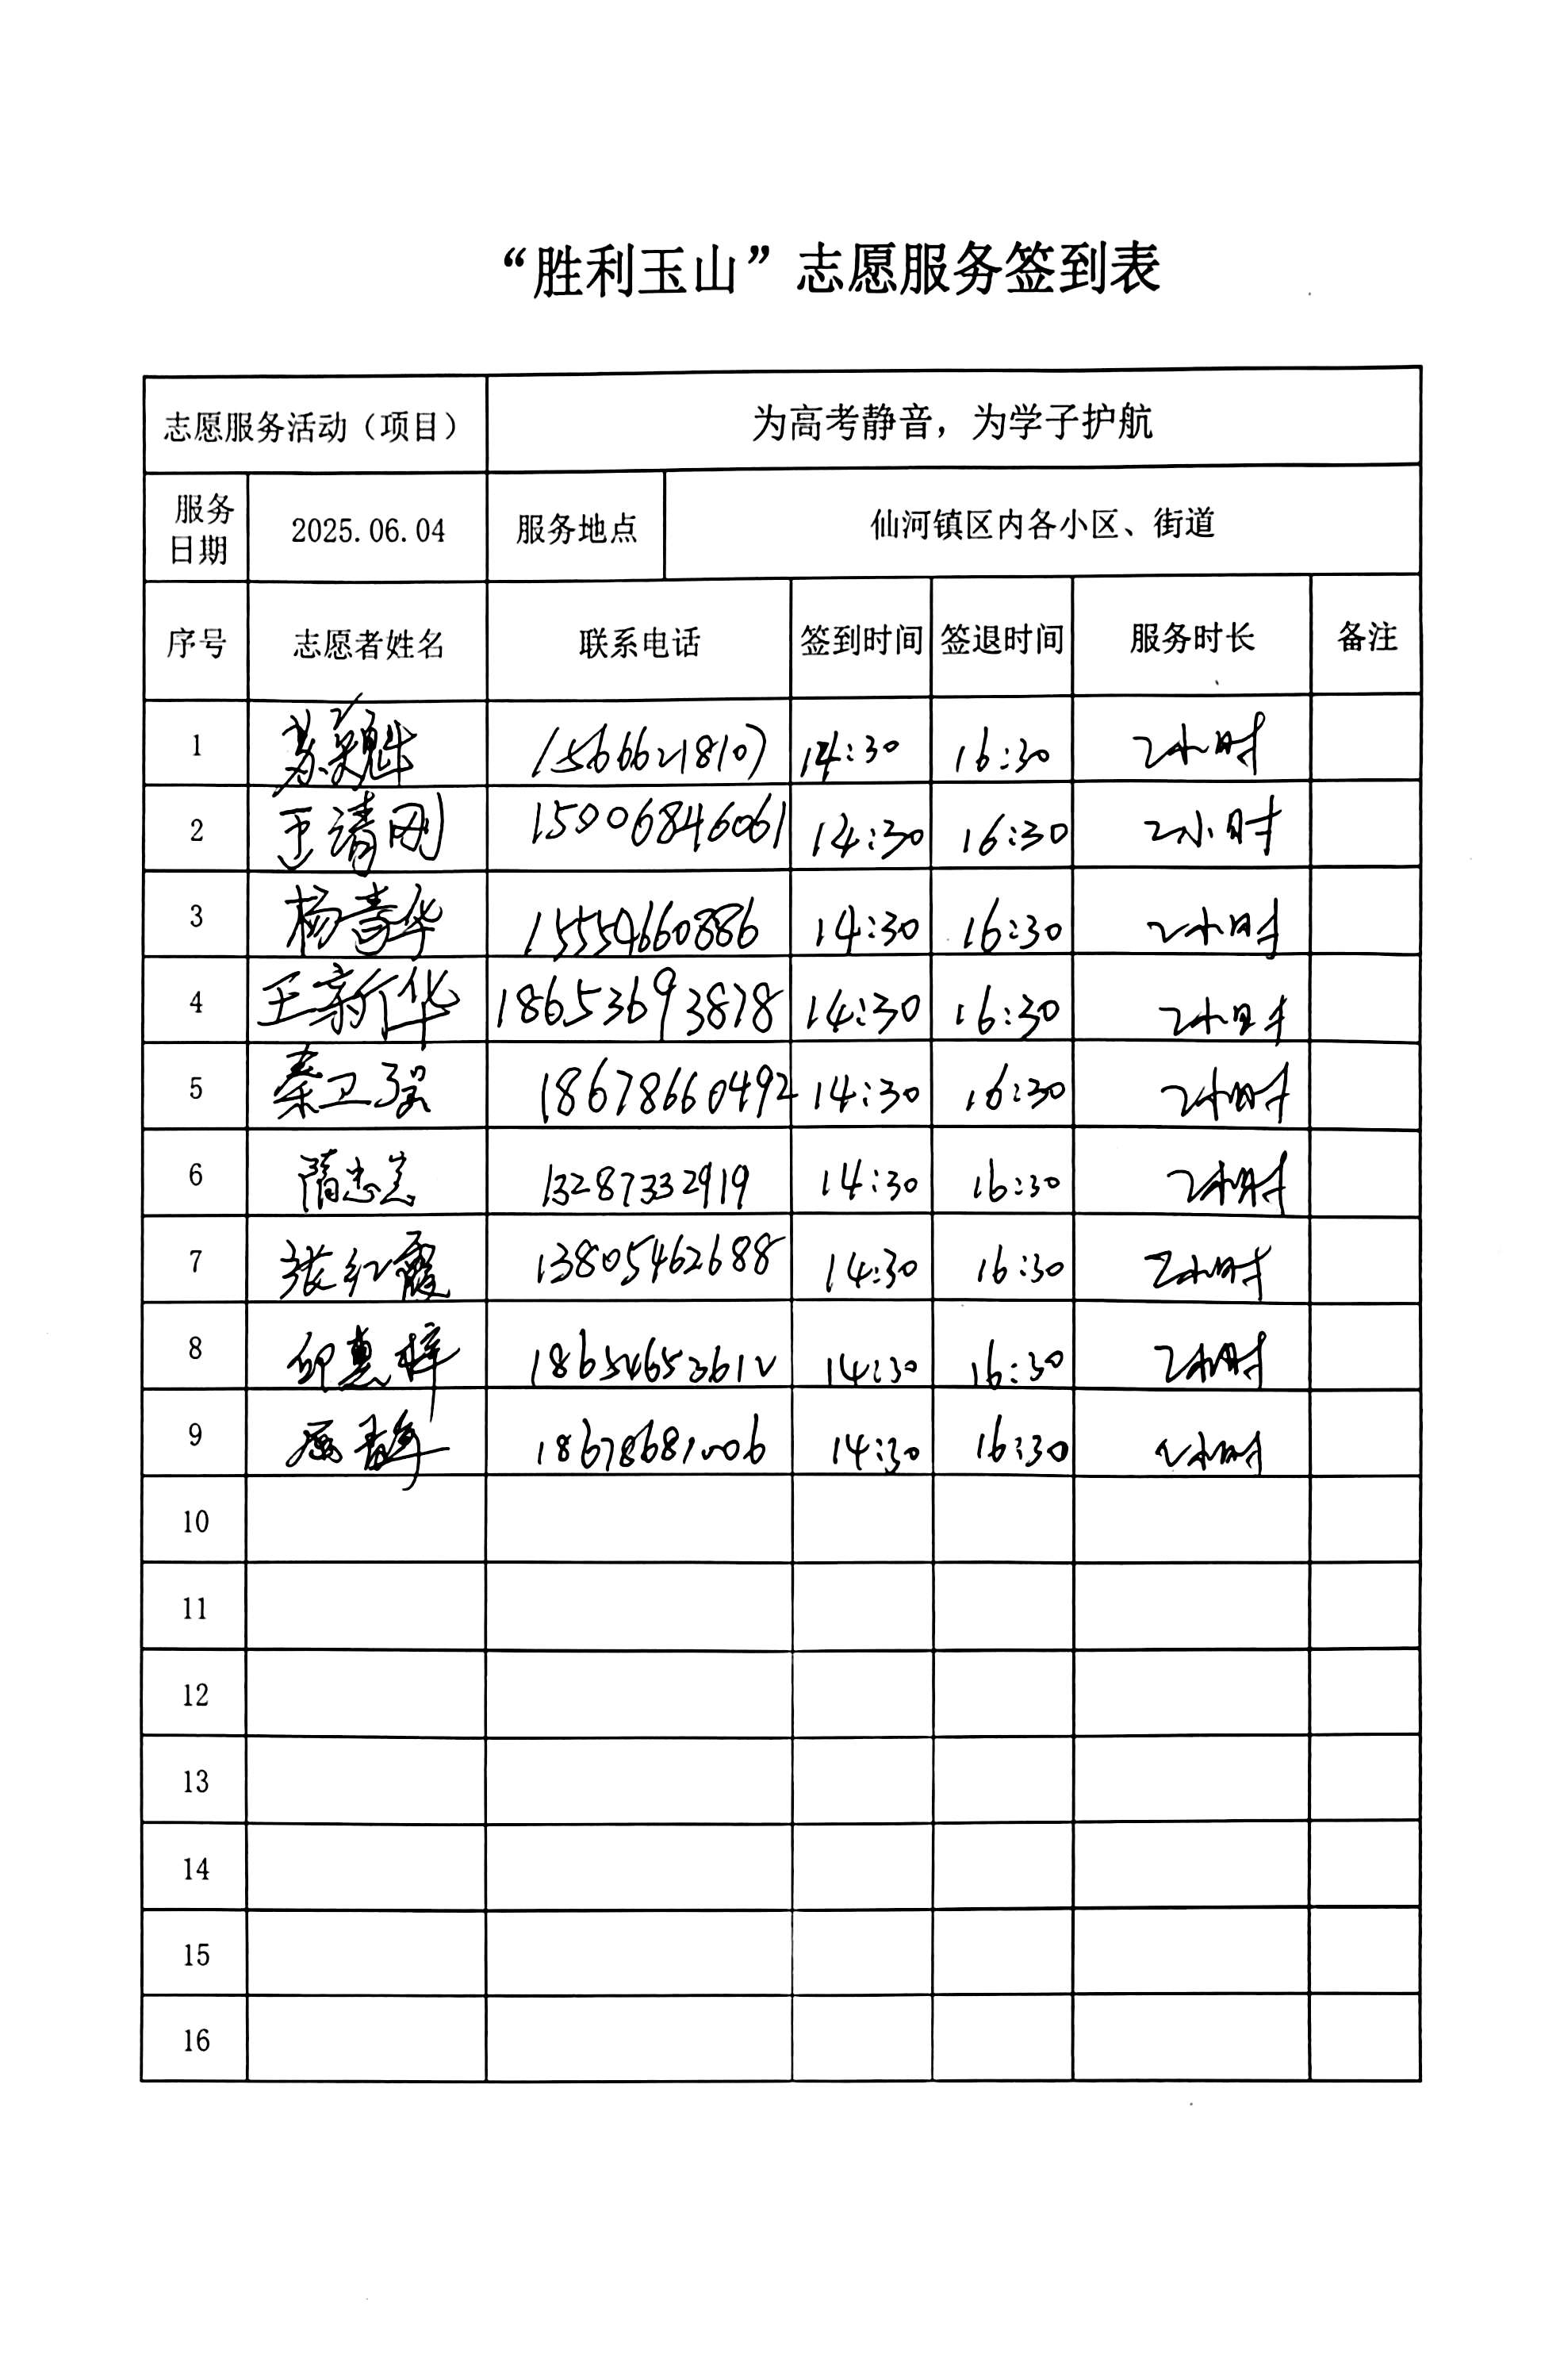 “胜利玉山”志愿服务签到表
志愿服务活动（项目） 为高考静音，为学子护航
服务日期 2025.06.04 服务地点 仙河镇区内各小区、街道
序号 志愿者姓名 联系电话 签到时间 签退时间 服务时长 备注
1 苏 魁 15666218107 14:30 16:30 2小时
2 王清刚 15006846061 14:30 16:30 2小时
3 杨青华 15554660886 14:30 16:30 2小时
4 王新华 18653693878 14:30 16:30 2小时
5 秦卫强 18678660492 14:30 16:30 2小时
6 隋忠 13287332919 14:30 16:30 2小时
7 张红霞 13805462688 14:30 16:30 2小时
8 邱惠梓 18654653612 14:30 16:30 2小时
9 14:30 16:30 2小时
10
11
12
13
14
15
16